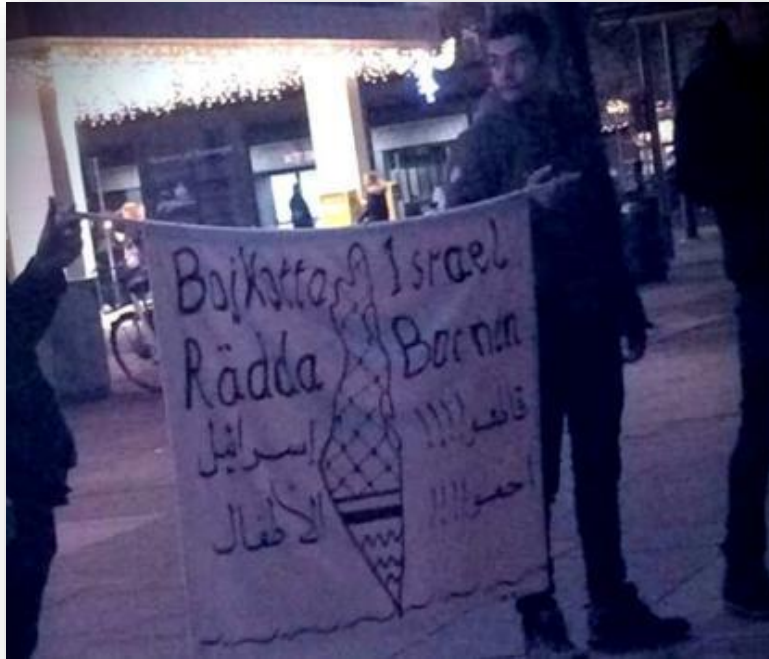 Bojkotta Israel
Rädda Barnen
قاطعوا!!!! إسرائيل
احموا!!!! الأطفال